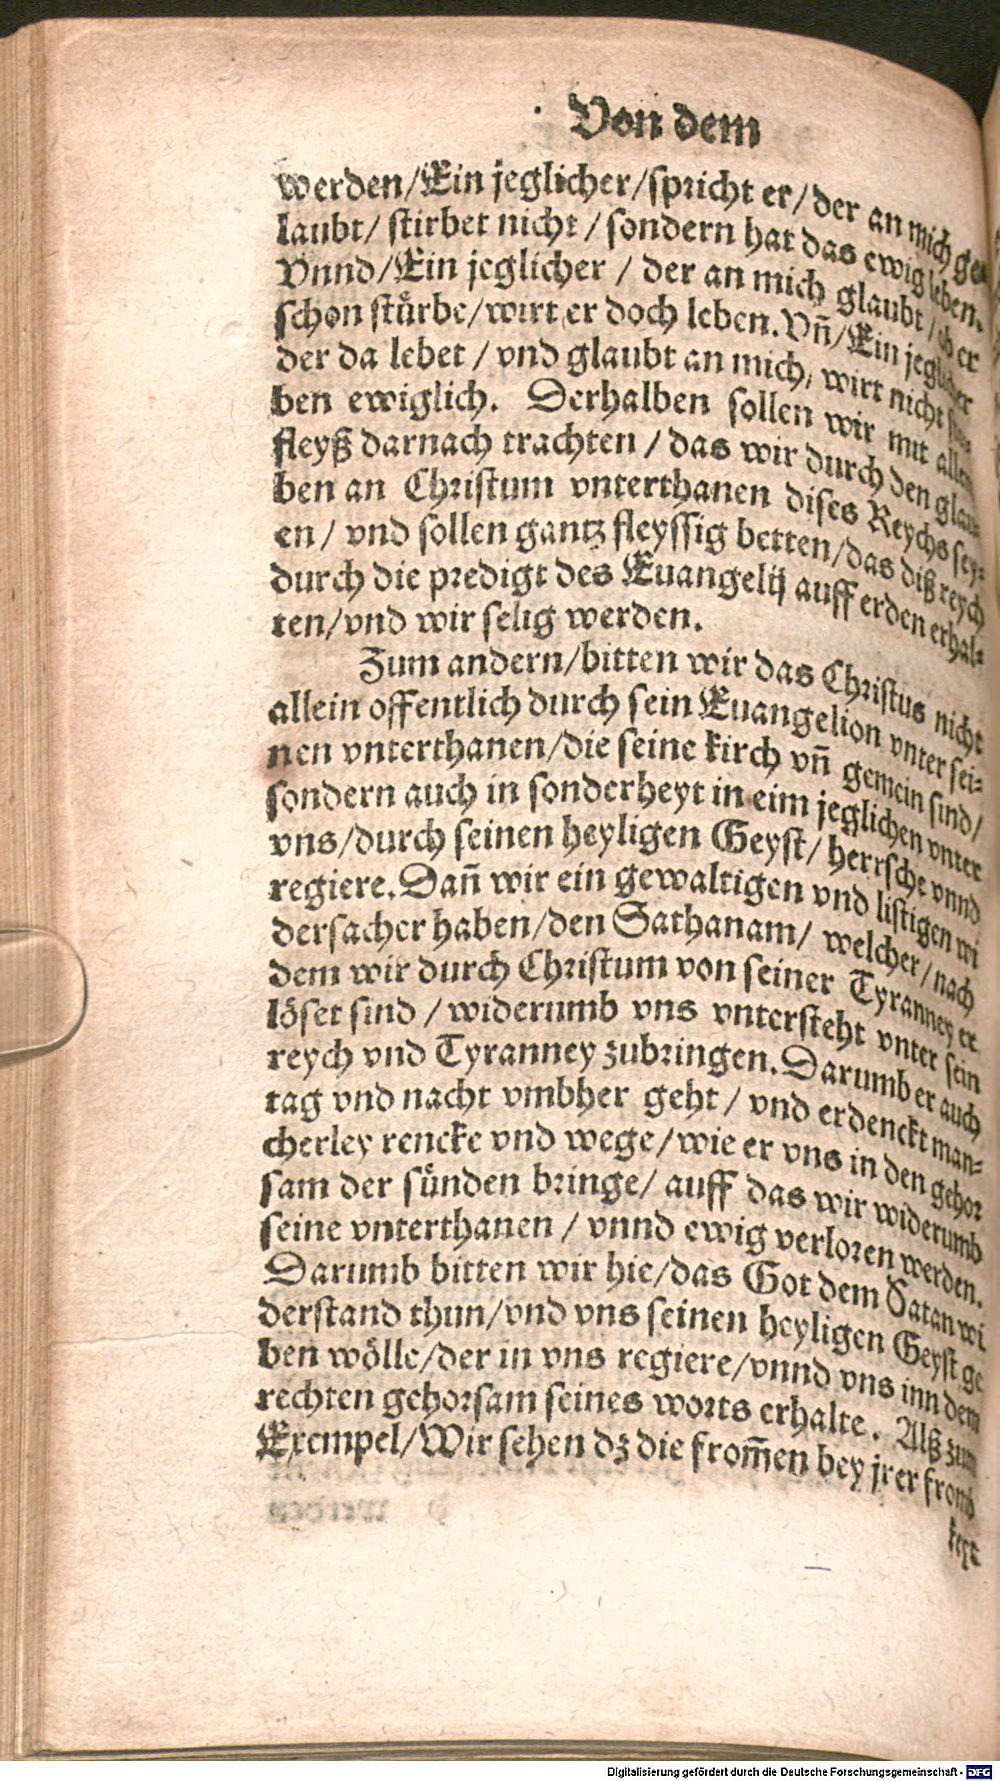 Von dem
werden/Ein jeglicher/spricht er/der an mich ge
laubt/ stirbet nicht / sondern hat das ewig leben.
Vnnd/Ein jeglicher / der an mich glaubt / ob er
schon stürbe/wirt er doch leben. Vñ/Ein jeglicher
der da lebet / vnd glaubt an mich, wirt nicht
ben ewiglich. Derhalben sollen wir mit allem
fleyß darnach trachten / das wir durch den glau
ben an Christum vnterthanen dises Reychs sey-
en / vnd sollen gantz fleyssig betten/das diß reych
durch die predigt des Euangelij auff erden erhal-
ten/vnd wir selig werden.
Zum andern/bitten wir das Christus nicht
allein offentlich durch sein Euangelion vnter sei-
nen vnterthanen/die seine kirch vñ gemein sind/
sondern auch in sonderheyt in eim jeglichen vnter
vns/durch seinen heyligen Geyst/ herrsche vnnd
regiere. Dañ wir ein gewaltigen vnd listigen wi
dersacher haben/den Sathanam/ welcher/nach
dem wir durch Christum von seiner Tyranney er
löset sind / widerumb vns vntersteht vnter sein
reych vnd Tyranney zubringen. Darumb er auch
tag vnd nacht vmbher geht / vnd erdenckt man-
cherley rencke vnd wege/wie er vns in den gehor
sam der sünden bringe/ auff das wir widerumb
seine vnterthanen / vnnd ewig verloren werden.
Darumb bitten wir hie/das Got dem Satan wi
derstand thun/vnd vns seinen heyligen Geyst ge
ben wölle/der in vns regiere/vnnd vns inn dem
rechten gehorsam seines worts erhalte. Alß zum
Exempel/Wir sehen dz die from̃en bey jrer fromb
keyt
Digitalisierung gefördert durch die Deutsche Forschungsgemeinschaft - DFG